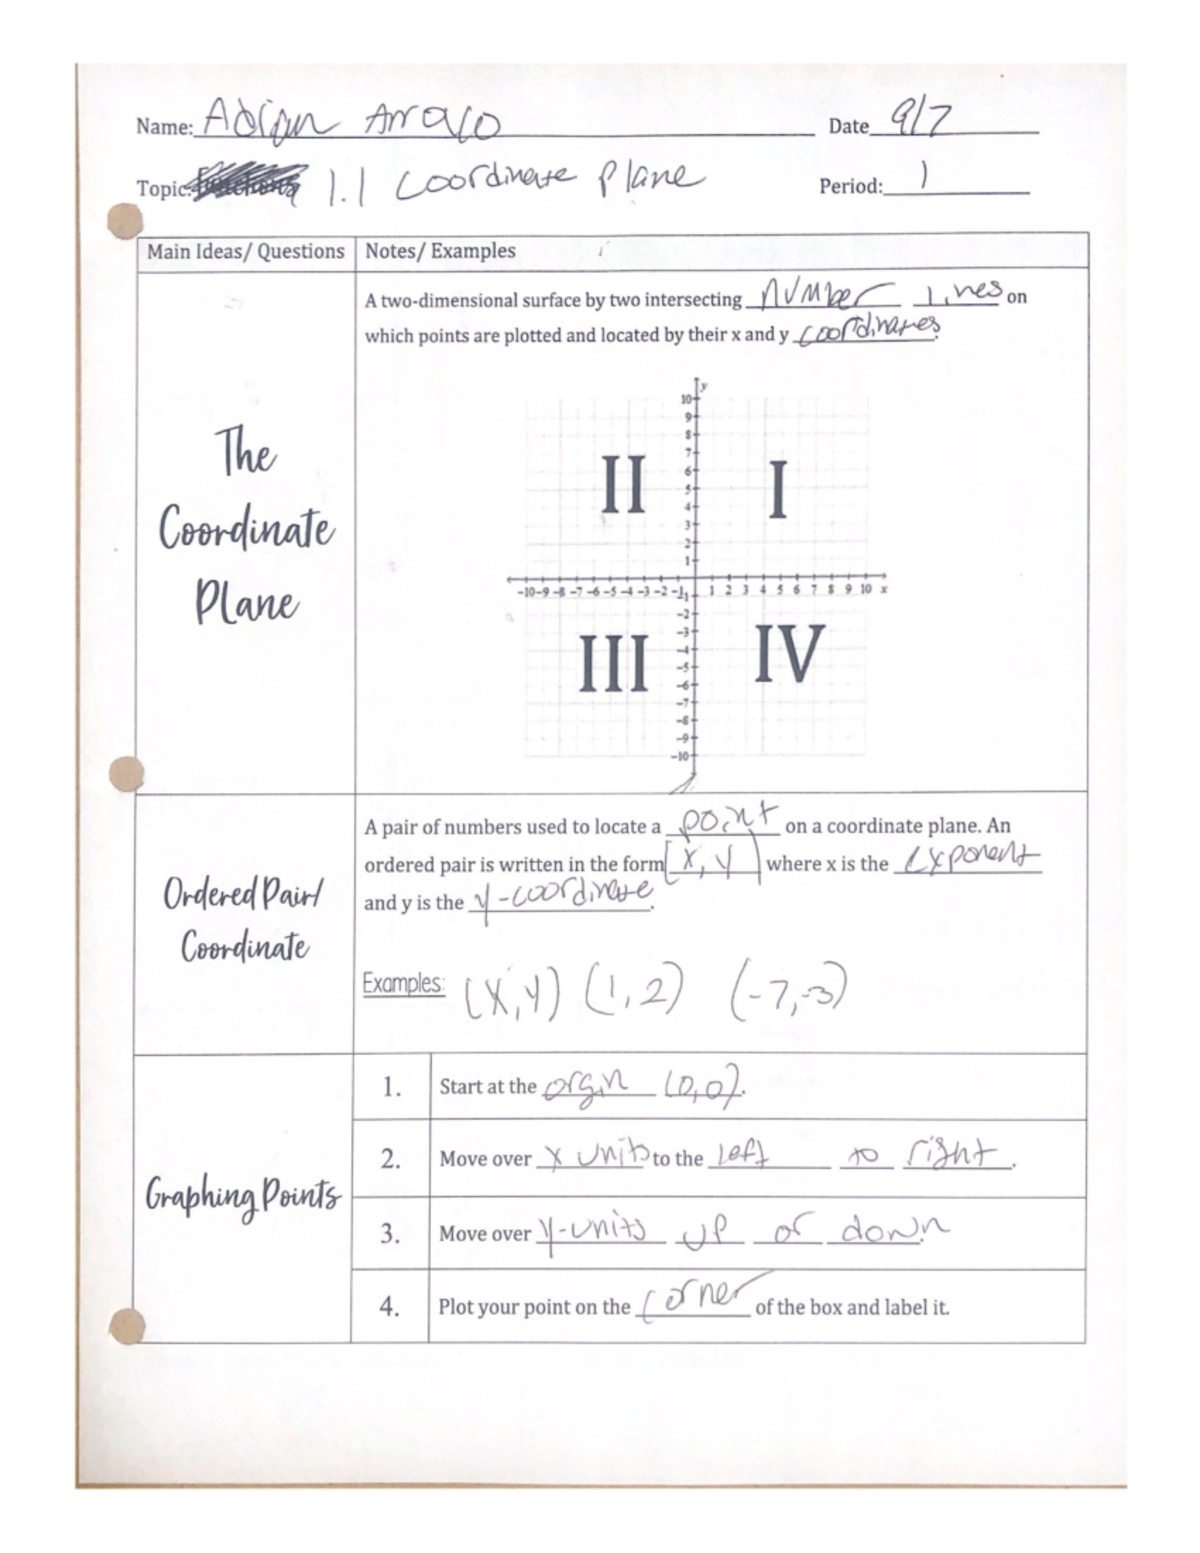 Name: Adrian Arrayo Date 9/7
Topic: 1.1 Coordinate Plane Period: 1
Main Ideas/ Questions Notes/ Examples
A two-dimensional surface by two intersecting number lines on
which points are plotted and located by their x and y coordinates.
The
Coordinate
Plane
y
10
9
8
7
6
5
4
3
2
1
II I
-10 -9 -8 -7 -6 -5 -4 -3 -2 -1 1 2 3 4 5 6 7 8 9 10 x
-1
-2
-3
-4
-5
-6
-7
-8
-9
-10
III IV
Ordered Pair/
Coordinate
A pair of numbers used to locate a point on a coordinate plane. An
ordered pair is written in the form (x, y) where x is the exponent
and y is the y-coordinate.
Examples: (x,y) (1,2) (-7,-3)
Graphing Points
1. Start at the orgin (0,0).
2. Move over x units to the left to right.
3. Move over y-units up or down
4. Plot your point on the corner of the box and label it.